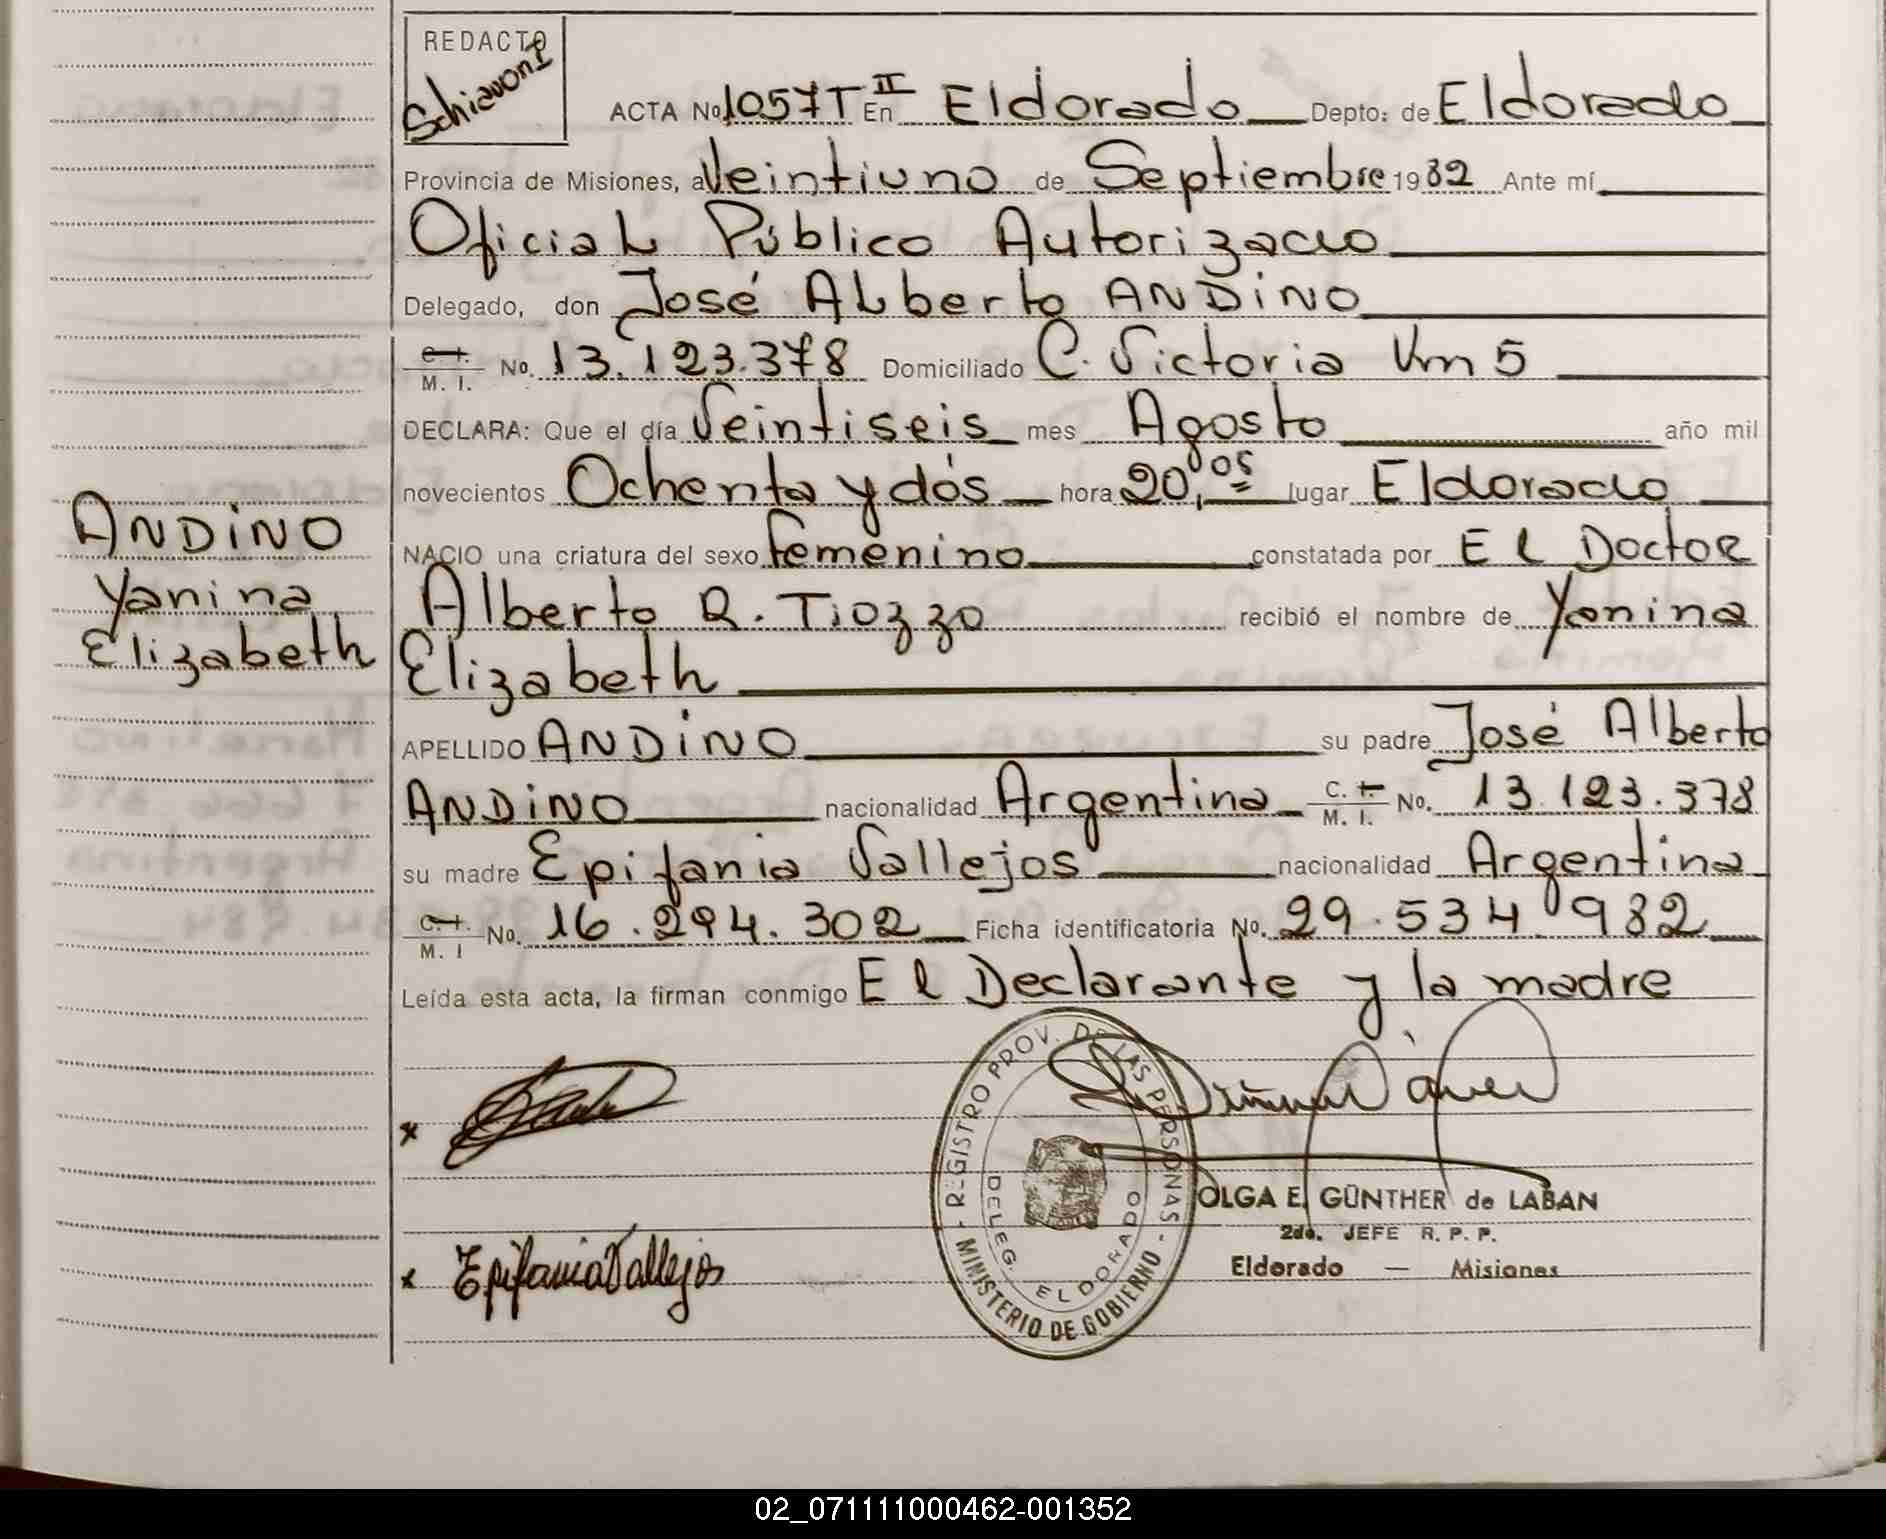 REDACTO
Schiavoni
ACTA No 1057 T II En Eldorado Depto: de Eldorado
Provincia de Misiones, a Veintiuno de Septiembre 1982 Ante mí
Oficial Público Autorizado
Delegado, don José Alberto ANDINO
C. I. M. I. No. 13.123.378 Domiciliado C. Victoria Km 5
DECLARA: Que el día Veintiseis mes Agosto año mil
novecientos Ochenta y dós hora 20,05 lugar Eldorado
NACIO una criatura del sexo femenino constatada por El Doctor
Alberto R. Tiozzo recibió el nombre de Yanina
Elizabeth
APELLIDO ANDINO su padre José Alberto
ANDINO nacionalidad Argentina C. I. M. I. No. 13.123.378
su madre Epifania Vallejos nacionalidad Argentina
C. I. M. I No. 16.294.302 Ficha identificatoria No. 29.534.982
Leída esta acta, la firman conmigo El Declarante y la madre
ANDINO
Yanina
Elizabeth
x
x Epifania Vallejos
REGISTRO PROV. DE LAS PERSONAS
MINISTERIO DE GOBIERNO
DELEG. ELDORADO
OLGA E. GÜNTHER de LABAN
2do. JEFE R. P. P.
Eldorado — Misiones
02_071111000462-001352